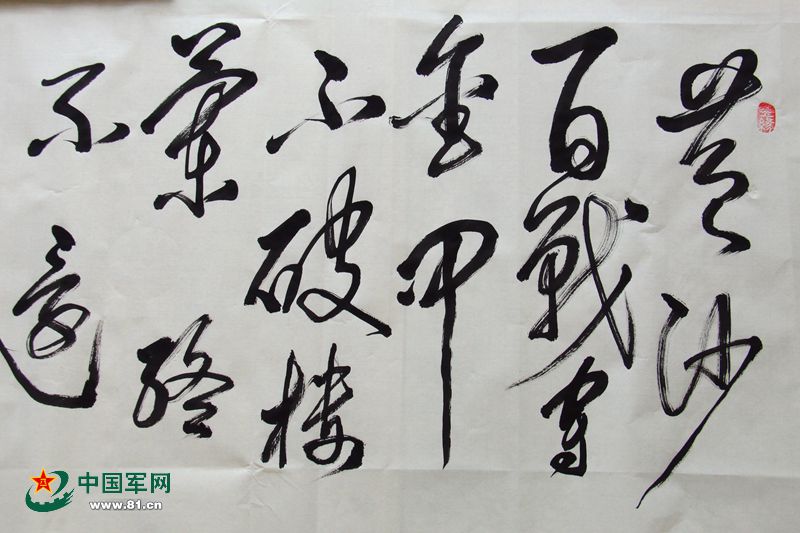 黄沙
百戰穿
金甲
不破楼
蘭終
不還
中国军网
www.81.cn